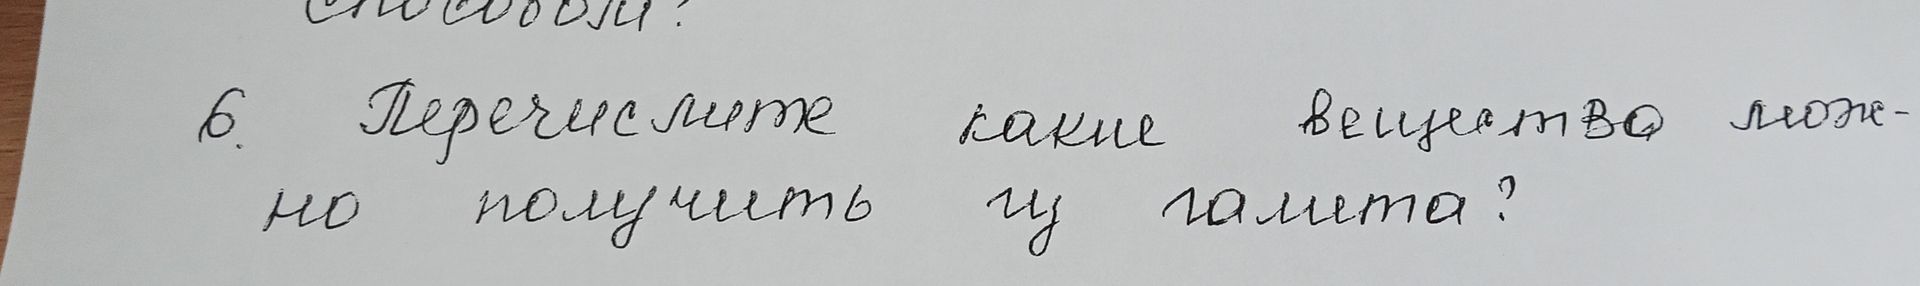 способом?
6. Перечислите какие вещества мож-
но получить из галита?